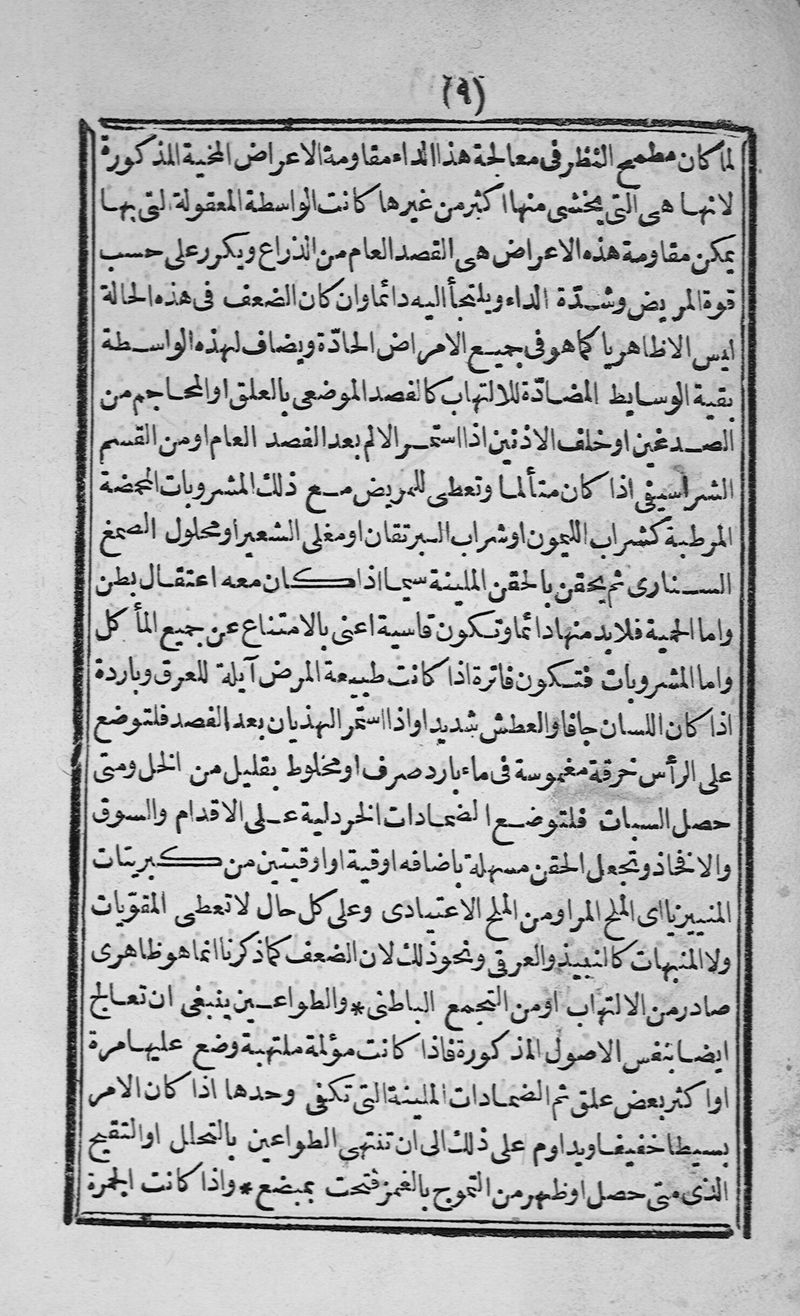 (٩)
لما كان مطمح النظر فى معالجة هذا الداء مقاومة الاعراض المخية المذكورة
لانها هى التى يخشى منها اكثر من غيرها كانت الواسطة المعقولة التى بها
يمكن مقاومة هذه الاعراض هى الفصد العام من الذراع ويكرر على حسب
قوة المريض وشدّة الداء ويلتجأ اليه دائما وان كان الضعف فى هذه الحالة
ليس الا ظاهريا كما هو فى جميع الامراض الحادّة ويضاف لهذه الواسطة
بقية الوسايط المضادّة للالتهاب كالفصد الموضعى بالعلق او المحاجم من
الصدغين او خلف الاذنين اذا استمر الالم بعد الفصد العام او من القسم
الشراسيفى اذا كان متألما وتعطى للمريض مع ذلك المشروبات المحمضة
المرطبة كشراب الليمون او شراب البرتقان او مغلى الشعير او محلول الصمغ
السنارى ثم يحقن بالحقن الملينة سيما اذا كان معه اعتقال بطن
واما الحمية فلابد منها دائما وتكون قاسية اعنى بالامتناع عن جميع المأكل
واما المشروبات فتكون فاترة اذا كانت طبيعة المرض آيلة للعرق وباردة
اذا كان اللسان جافا والعطش شديدا واذا استمر الهذيان بعد الفصد فلتوضع
على الرأس خرقة مغموسة فى ماء بارد صرف او مخلوط بقليل من الخل ومتى
حصل السبات فلتوضع الضمادات الخردلية على الاقدام والسوق
والافخاذ وتجعل الحقن مسهلة باضافه اوقية او اوقيتين من كبريتات
المنييزيا اى الملح المر او من الملح الاعتيادى وعلى كل حال لا تعطى المقوّيات
ولا المنبهات كالنبيذ والعرقى ونحو ذلك لان الضعف كما ذكرنا انما هو ظاهرى
صادر من الالتهاب او من التجمع الباطنى * والطواعين ينبغى ان تعالج
ايضا بنفس الاصول المذكورة فاذا كانت مؤلمة ملتهبة وضع عليها مرة
او اكثر بعض علق ثم الضمادات الملينة التى تكفى وحدها اذا كان الامر
بسيطا خفيفا ويداوم على ذلك الى ان تنتهى الطواعين بالتحلل او التقيح
الذى متى حصل او ظهر من التموج بالغمز فتحت بمبضع * واذا كانت الجمرة